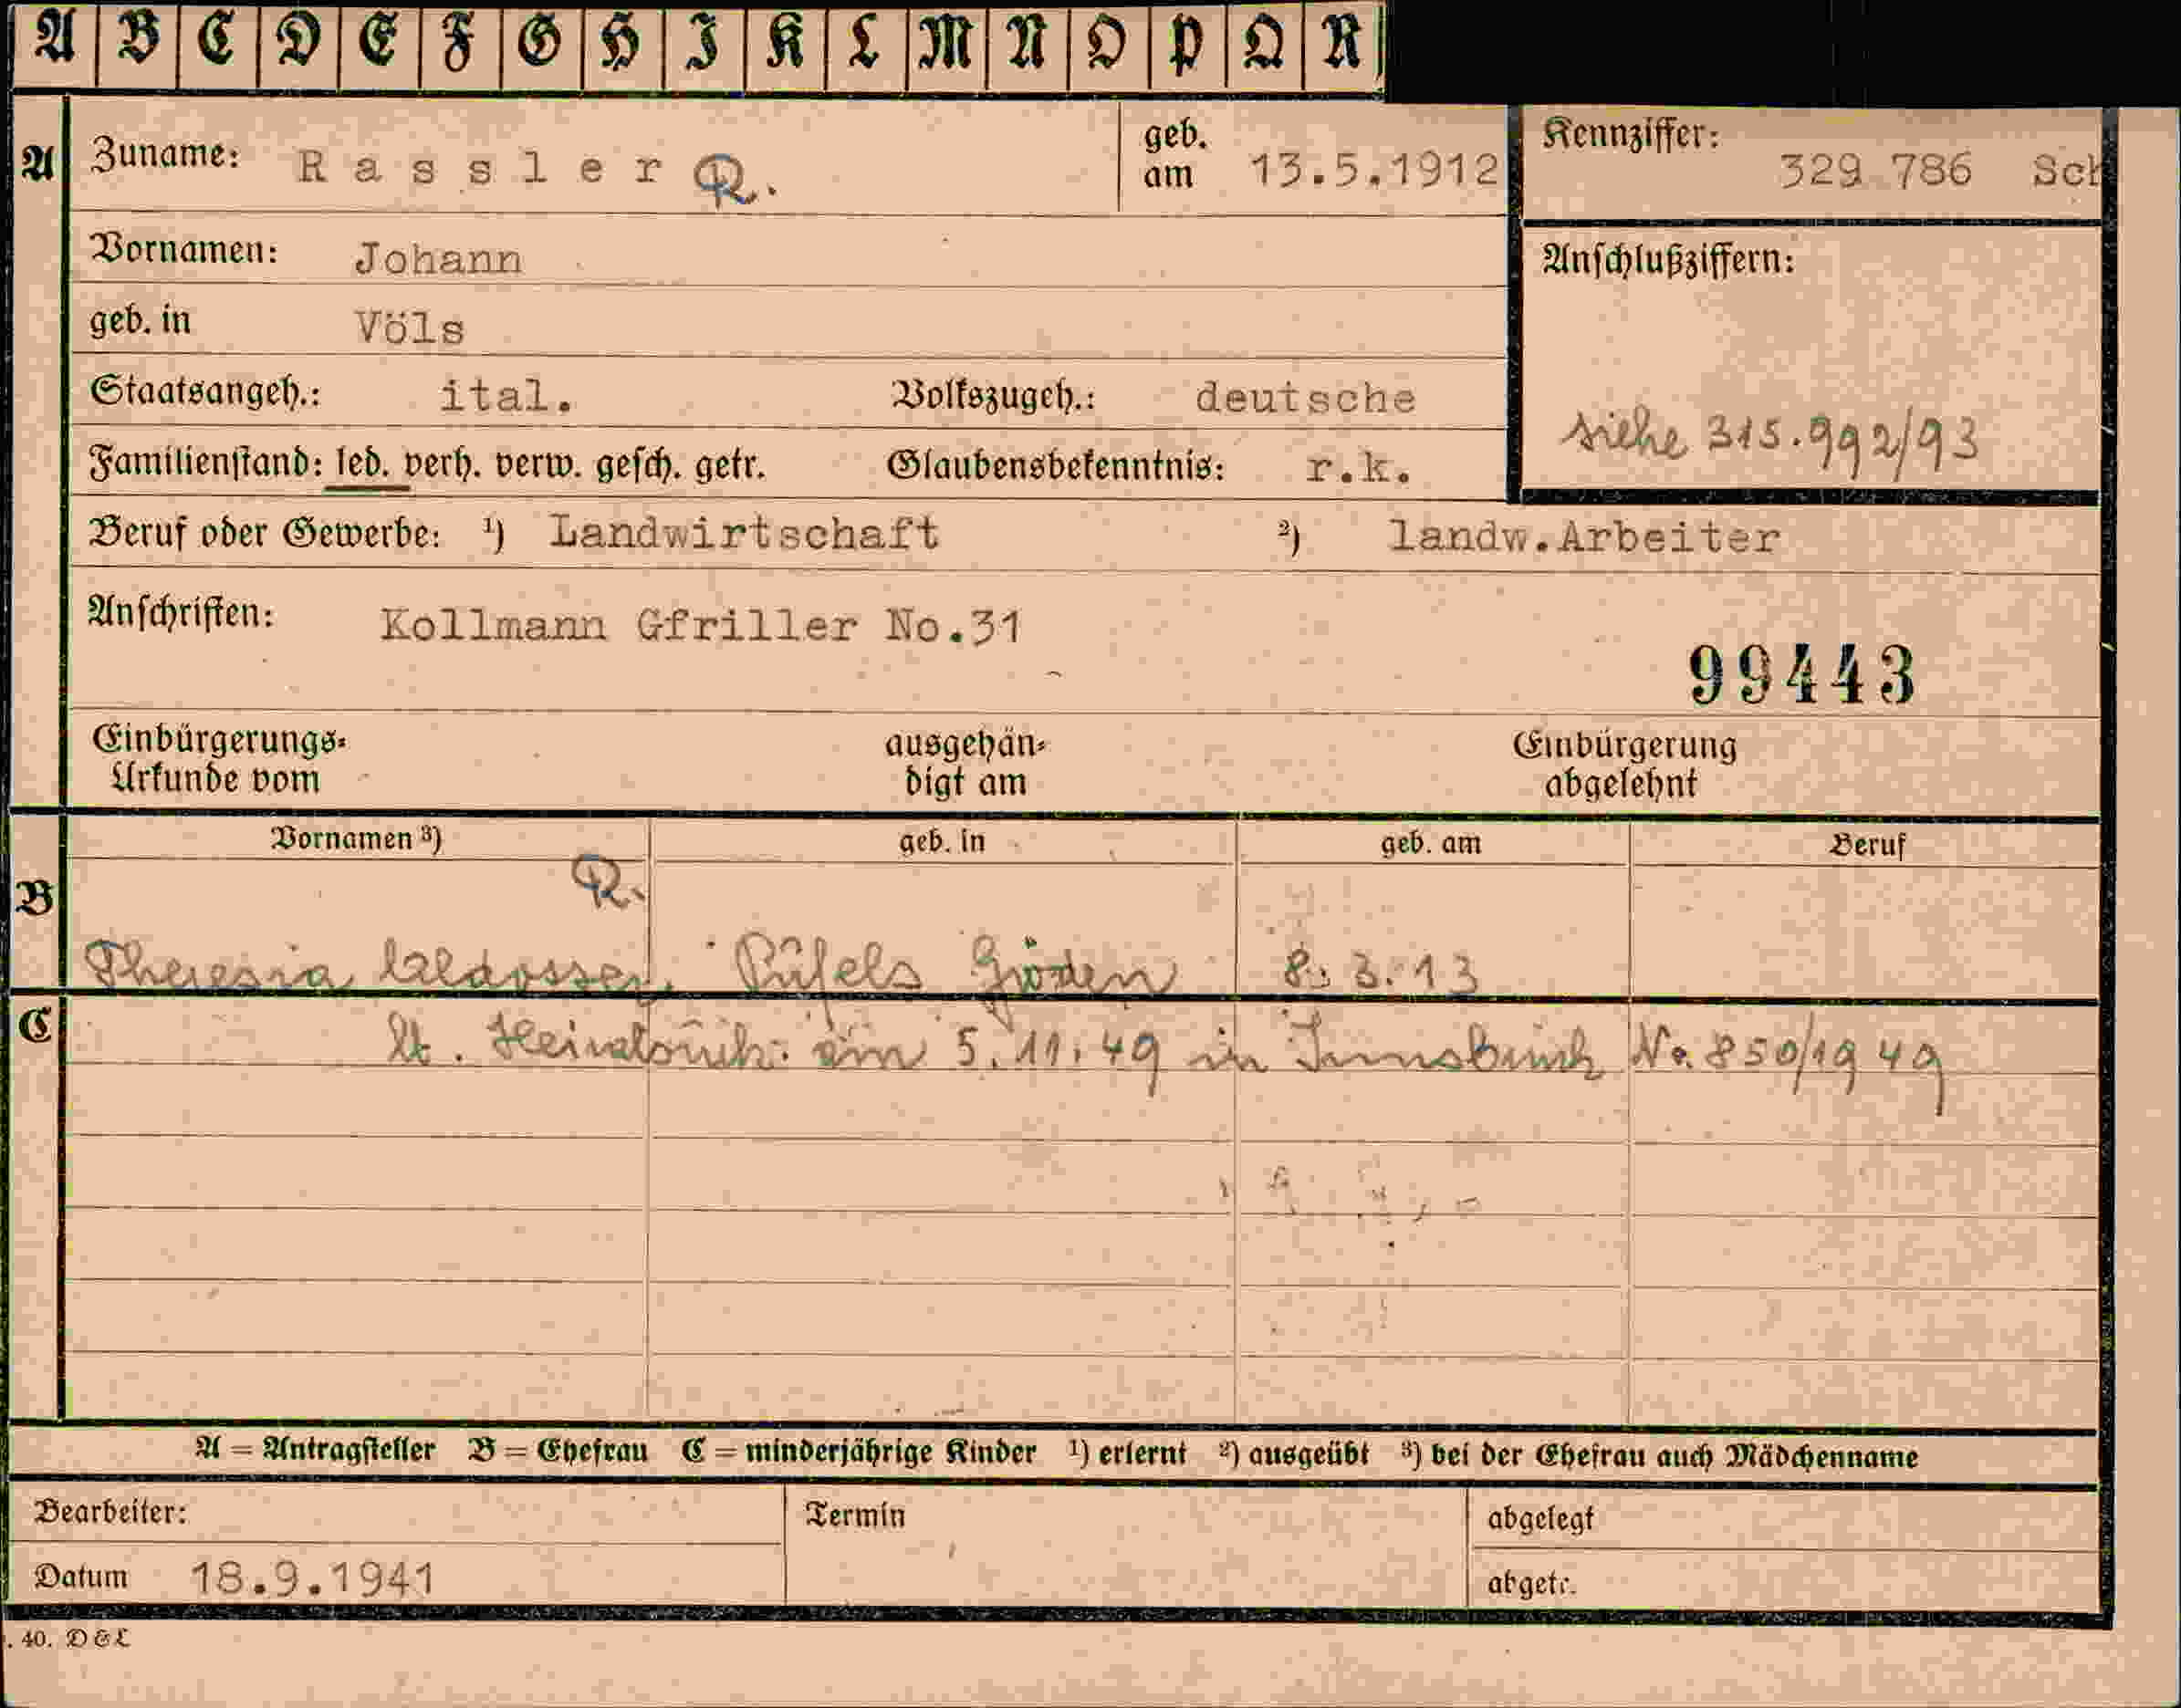 A B C D E F G H I K L M N O P Q R
A Zuname: Rassler R. geb. am 13.5.1912 Kennziffer: 329 786 Sch
Vornamen: Johann Anschlußziffern:
geb. in Völs
Staatsangeh.: ital. Volkszugeh.: deutsche siehe 315.992/93
Familienstand: led. verh. verw. gesch. getr. Glaubensbekenntnis: r.k.
Beruf oder Gewerbe: ¹) Landwirtschaft ²) landw.Arbeiter
Anschriften: Kollmann Gfriller No.31
99443
Einbürgerungs- ausgehän- Einbürgerung
Urkunde vom digt am abgelehnt
Vornamen ³) geb. in geb. am Beruf
B R.
Theresia Pufels Gröden 8. 3. 13
C lt. am 5.11.49 in Innsbruck No. 850/1949
A = Antragsteller B = Ehefrau C = minderjährige Kinder ¹) erlernt ²) ausgeübt ³) bei der Ehefrau auch Mädchenname
Bearbeiter: Termin abgelegt
Datum 18.9.1941 abgetr.
. 40. D & L